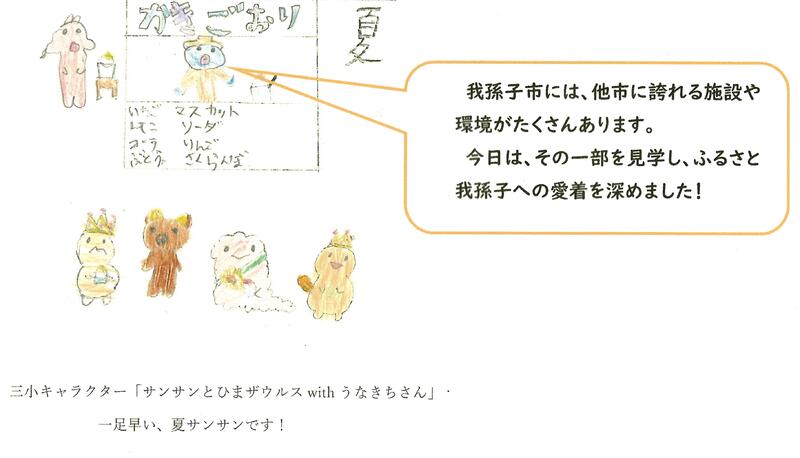 かきごおり
夏
いちご マスカット
レモン ソーダ
コーラ りんご
ぶどう さくらんぼ
我孫子市には、他市に誇れる施設や
環境がたくさんあります。
今日は、その一部を見学し、ふるさと
我孫子への愛着を深めました！
三小キャラクター「サンサンとひまザウルス with うなきちさん」・
一足早い、夏サンサンです！